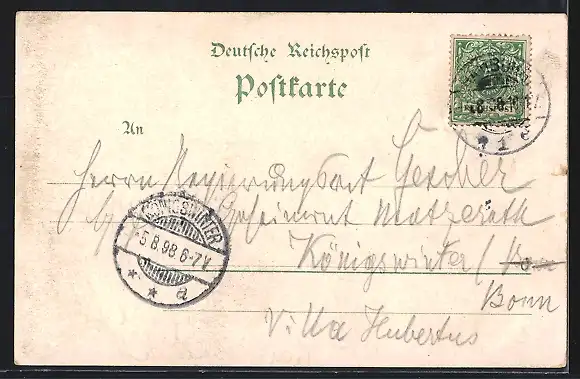 Deutsche Reichspost
Postkarte
An
Herrn Regierungsrat Gescher
b/ Geheimrat Matzerath
Königswinter / Bonn
Bonn
Villa Hubertus
KÖNIGSWINTER
5.8.98.6-7N.
* * a